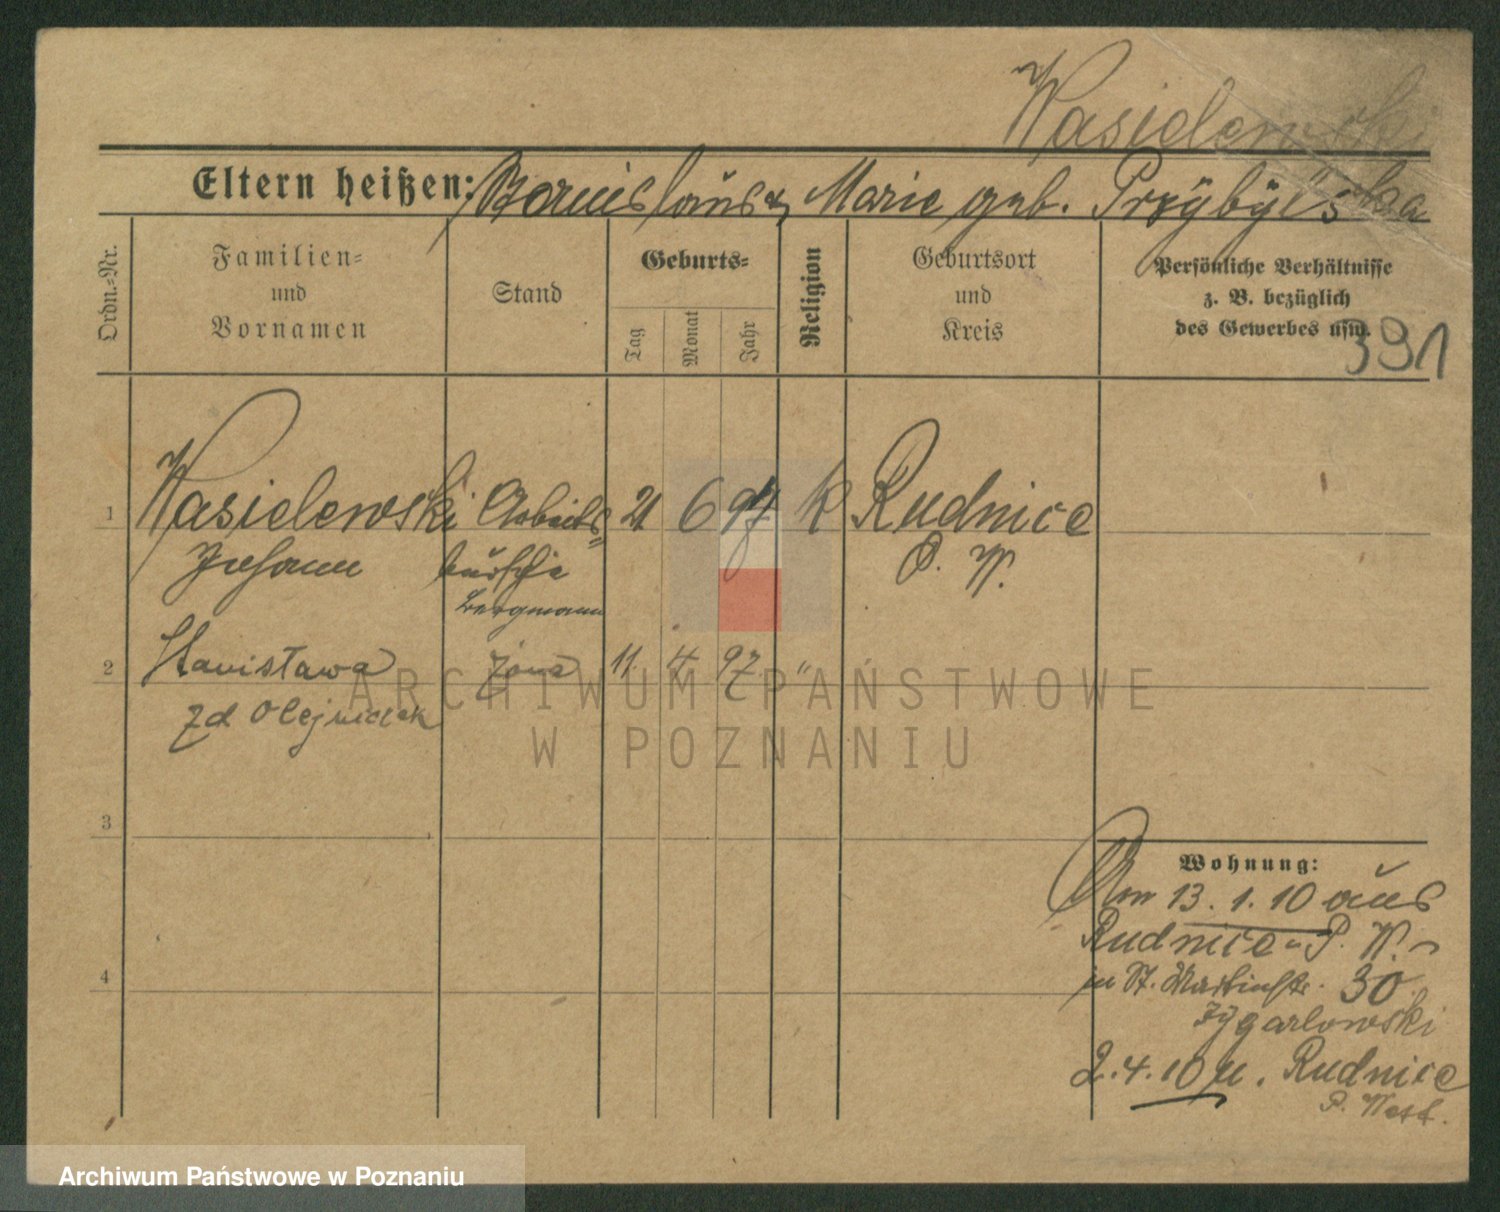 Wasielewski
Eltern heißen: Stanislaus & Marie geb. Przybylska
Ordn.-Nr.
Familien-
und
Vornamen
Stand
Geburts-
Tag
Monat
Jahr
Religion
Geburtsort
und
Kreis
Persönliche Verhältnisse
z. B. bezüglich
des Gewerbes usw.
391
1 Wasielewski Arbeits- 21 6 97 k Rudnice
Johann bursche P. W.
Bergmann
2 Stanisława żona 11 4 97 "
zd Olejniczak
3
4
Wohnung:
Am 13.1.10 aus
Rudnice - P. W. -
in St. Martinstr. 30
Zygarlowski
2.4.10 n. Rudnice
P. West.
ARCHIWUM PAŃSTWOWE
W POZNANIU
Archiwum Państwowe w Poznaniu